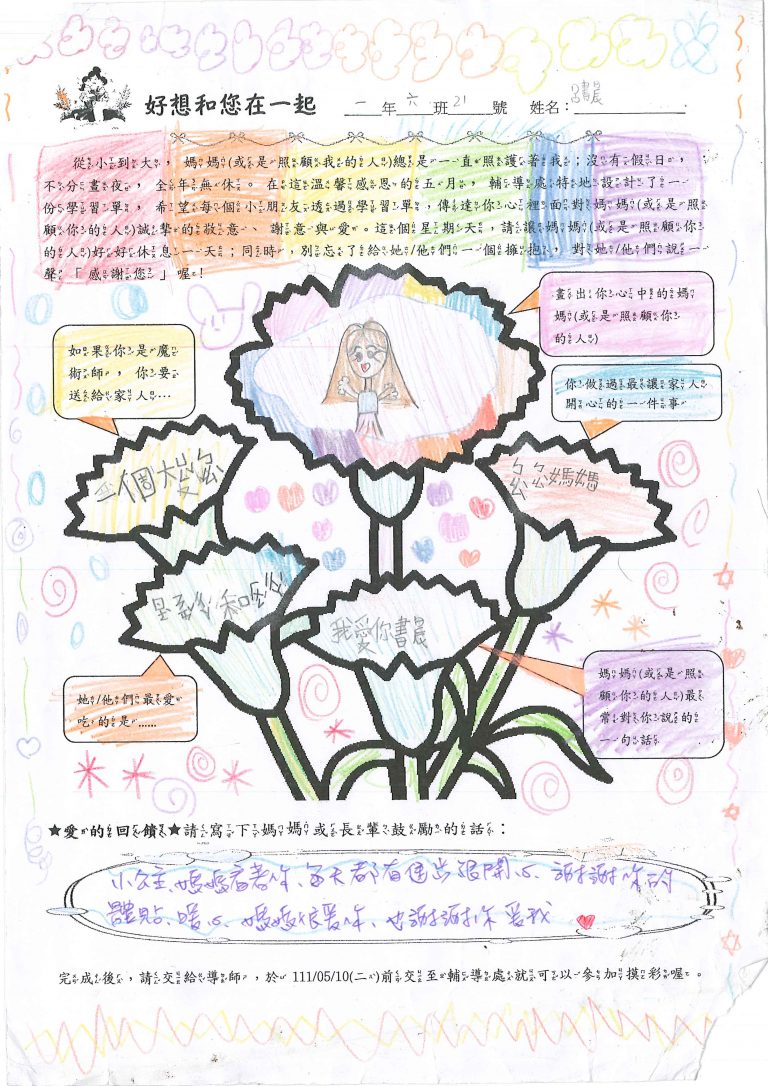 好想和您在一起 一年六班21號 姓名:呂書晨
從小到大，媽媽(或是照顧我的人)總是一直照護著我；沒有假日，
不分晝夜，全年無休。在這溫馨感恩的五月，輔導處特地設計了一
份學習單，希望每個小朋友透過學習單，傳達你心裡面對媽媽(或是照
顧你的人)誠摯的敬意、謝意與愛。這個星期天，請讓媽媽(或是照顧你
的人)好好休息一天；同時，別忘了給她/他們一個擁抱，對她/他們說一
聲「感謝您」喔！
畫出你心中的媽
媽(或是照顧你
的人)
如果你是魔
術師，你要
送給家人…
你做過最讓家人
開心的一件事
個大
媽媽
我愛你書晨
她/他們最愛
吃的是……
媽媽(或是照
顧你的人)最
常對你說的
一句話
★愛的回饋★請寫下媽媽或長輩鼓勵的話：
小公主、媽媽看著你、每天都有進步很開心 謝謝你的
體貼、暖心、媽媽很愛你、也謝謝你愛我
完成後，請交給導師，於 111/05/10(二)前交至輔導處就可以參加摸彩喔。